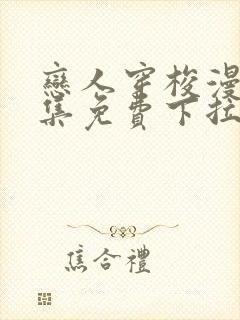 戀人穿梭漫
集免費下拉
焦合禮